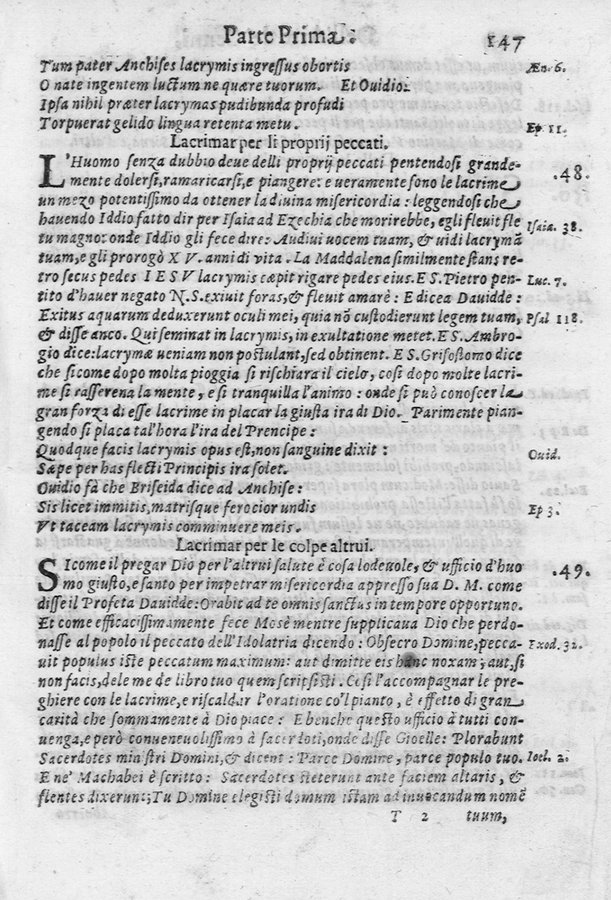 Parte Prima. 147
Tum pater Anchises lacrymis ingressus obortis Æn. 6.
O nate ingentem luctum ne quære tuorum. Et Ouidio.
Ipsa nihil præter lacrymas pudibunda profudi
Torpuerat gelido lingua retenta metu. Ep 11.
Lacrimar per li proprij peccati.
L'Huomo senza dubbio deue delli proprij peccati pentendosi grande- .48.
mente dolersi, ramaricarsi, e piangere: e ueramente sono le lacrime
un mezo potentissimo da ottener la diuina misericordia: leggendosi che
hauendo Iddio fatto dir per Isaia ad Ezechia che morirebbe, egli fleuit fle
tu magno: onde Iddio gli fece dire: Audiui uocem tuam, & uidi lacrymā Isaia. 38.
tuam, e gli prorogò XV. anni di vita. La Maddalena similmente stans re-
tro secus pedes IESV lacrymis cæpit rigare pedes eius. E S. Pietro pen- Luc. 7.
tito d'hauer negato N.S. exiuit foras, & fleuit amarè: E dicea Dauidde:
Exitus aquarum deduxerunt oculi mei, quia nō custodierunt legem tuam, Psal 118.
& disse anco. Qui seminat in lacrymis, in exultatione metet. E S. Ambro-
gio dice: lacrymæ ueniam non postulant, sed obtinent. E S. Grisostomo dice
che si come dopo molta pioggia si rischiara il cielo, così dopo molte lacri-
me si rasserena la mente, e si tranquilla l'animo: onde si può conoscer la
gran forza di esse lacrime in placar la giusta ira di Dio. Parimente pian-
gendo si placa tal'hora l'ira del Prencipe:
Quodque facis lacrymis opus est, non sanguine dixit: Ouid.
Sæpe per has flecti Principis ira solet.
Ouidio fà che Briseida dice ad Anchise:
Sis licet immitis, matrisque ferocior undis Ep 3.
Vt taceam lacrymis comminuere meis.
Lacrimar per le colpe altrui.
SI come il pregar Dio per l'altrui salute è cosa lodeuole, & ufficio d'huo .49.
mo giusto, e santo per impetrar misericordia appresso sua D. M. come
disse il Profeta Dauidde: Orabit ad te omnis sanctus in tempore opportuno.
Et come efficacissimamente fece Mosè mentre supplicaua Dio che perdo-
nasse al popolo il peccato dell'Idolatria dicendo: Obsecro Domine, pecca- Exod. 32.
uit populus iste peccatum maximum: aut dimitte eis hanc noxam; aut, si
non facis, dele me de libro tuo quem scripsisti. Così l'accompagnar le pre-
ghiere con le lacrime, e riscaldar l'oratione co'l pianto, è effetto di gran
carità che sommamente à Dio piace: E benche questo ufficio à tutti con-
uenga, e però conueneuolissimo à sacerdoti, onde disse Gioelle: Plorabunt
Sacerdotes ministri Domini, & dicent: Parce Domine, parce populo tuo. Ioel. 2.
E ne' Machabei è scritto: Sacerdotes steterunt ante faciem altaris, &
flentes dixerunt; Tu Domine elegisti domum istam ad inuocandum nomē
T 2 tuum,